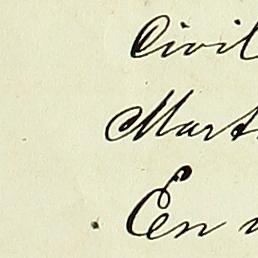 Civil
Mart
En